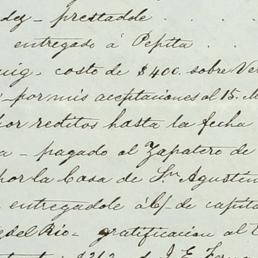 dey - prestadole
entregado á Pepita
uig, costo de $400. sobre Ver
- por mis aceptaciones al 15. M
por reditos hasta la fecha
a - pagado al Zapatero de
por la Casa de Sn Agustin
entregadole á c/- de capita
del Rio - gratificacion al
J. E.